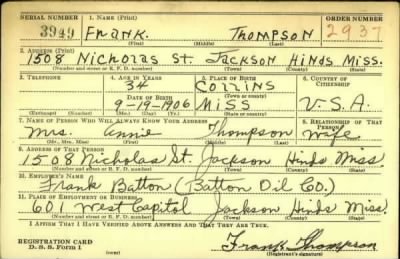 SERIAL NUMBER 1. NAME (Print) ORDER NUMBER
3949 FRANK. THOMPSON 2937
(First) (Middle) (Last)
2. ADDRESS (Print)
1508 Nicholas St. Jackson Hinds Miss.
(Number and street or R. F. D. number) (Town) (County) (State)
3. TELEPHONE 4. AGE IN YEARS 5. PLACE OF BIRTH 6. COUNTRY OF CITIZENSHIP
34 Collins
DATE OF BIRTH (Town or county)
9-19-1906 Miss U.S.A.
(Exchange) (Number) (Mo.) (Day) (Yr.) (State or country)
7. NAME OF PERSON WHO WILL ALWAYS KNOW YOUR ADDRESS 8. RELATIONSHIP OF THAT PERSON
Mrs. Annie Thompson Wife
(Mr., Mrs., Miss) (First) (Middle) (Last)
9. ADDRESS OF THAT PERSON
1508 Nicholas St. Jackson Hinds Miss.
(Number and street or R. F. D. number) (Town) (County) (State)
10. EMPLOYER'S NAME
Frank Batton (Batton Oil Co.)
11. PLACE OF EMPLOYMENT OR BUSINESS
601 West Capitol Jackson Hinds Miss.
(Number and street or R. F. D. number) (Town) (County) (State)
I AFFIRM THAT I HAVE VERIFIED ABOVE ANSWERS AND THAT THEY ARE TRUE.
REGISTRATION CARD
D. S. S. Form 1 (over) Frank Thompson
(Registrant's signature)